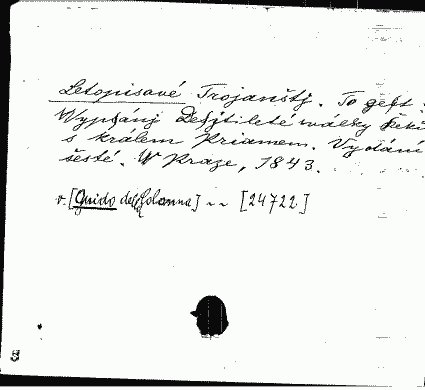 Letopisové Trojanštj. To gest :
Wypsánj Desjtileté války Řeků
s králem Priamem. Vydání
šesté. W Praze, 1843.
v. [Guido delle Colonna] ~ ~ [24722]